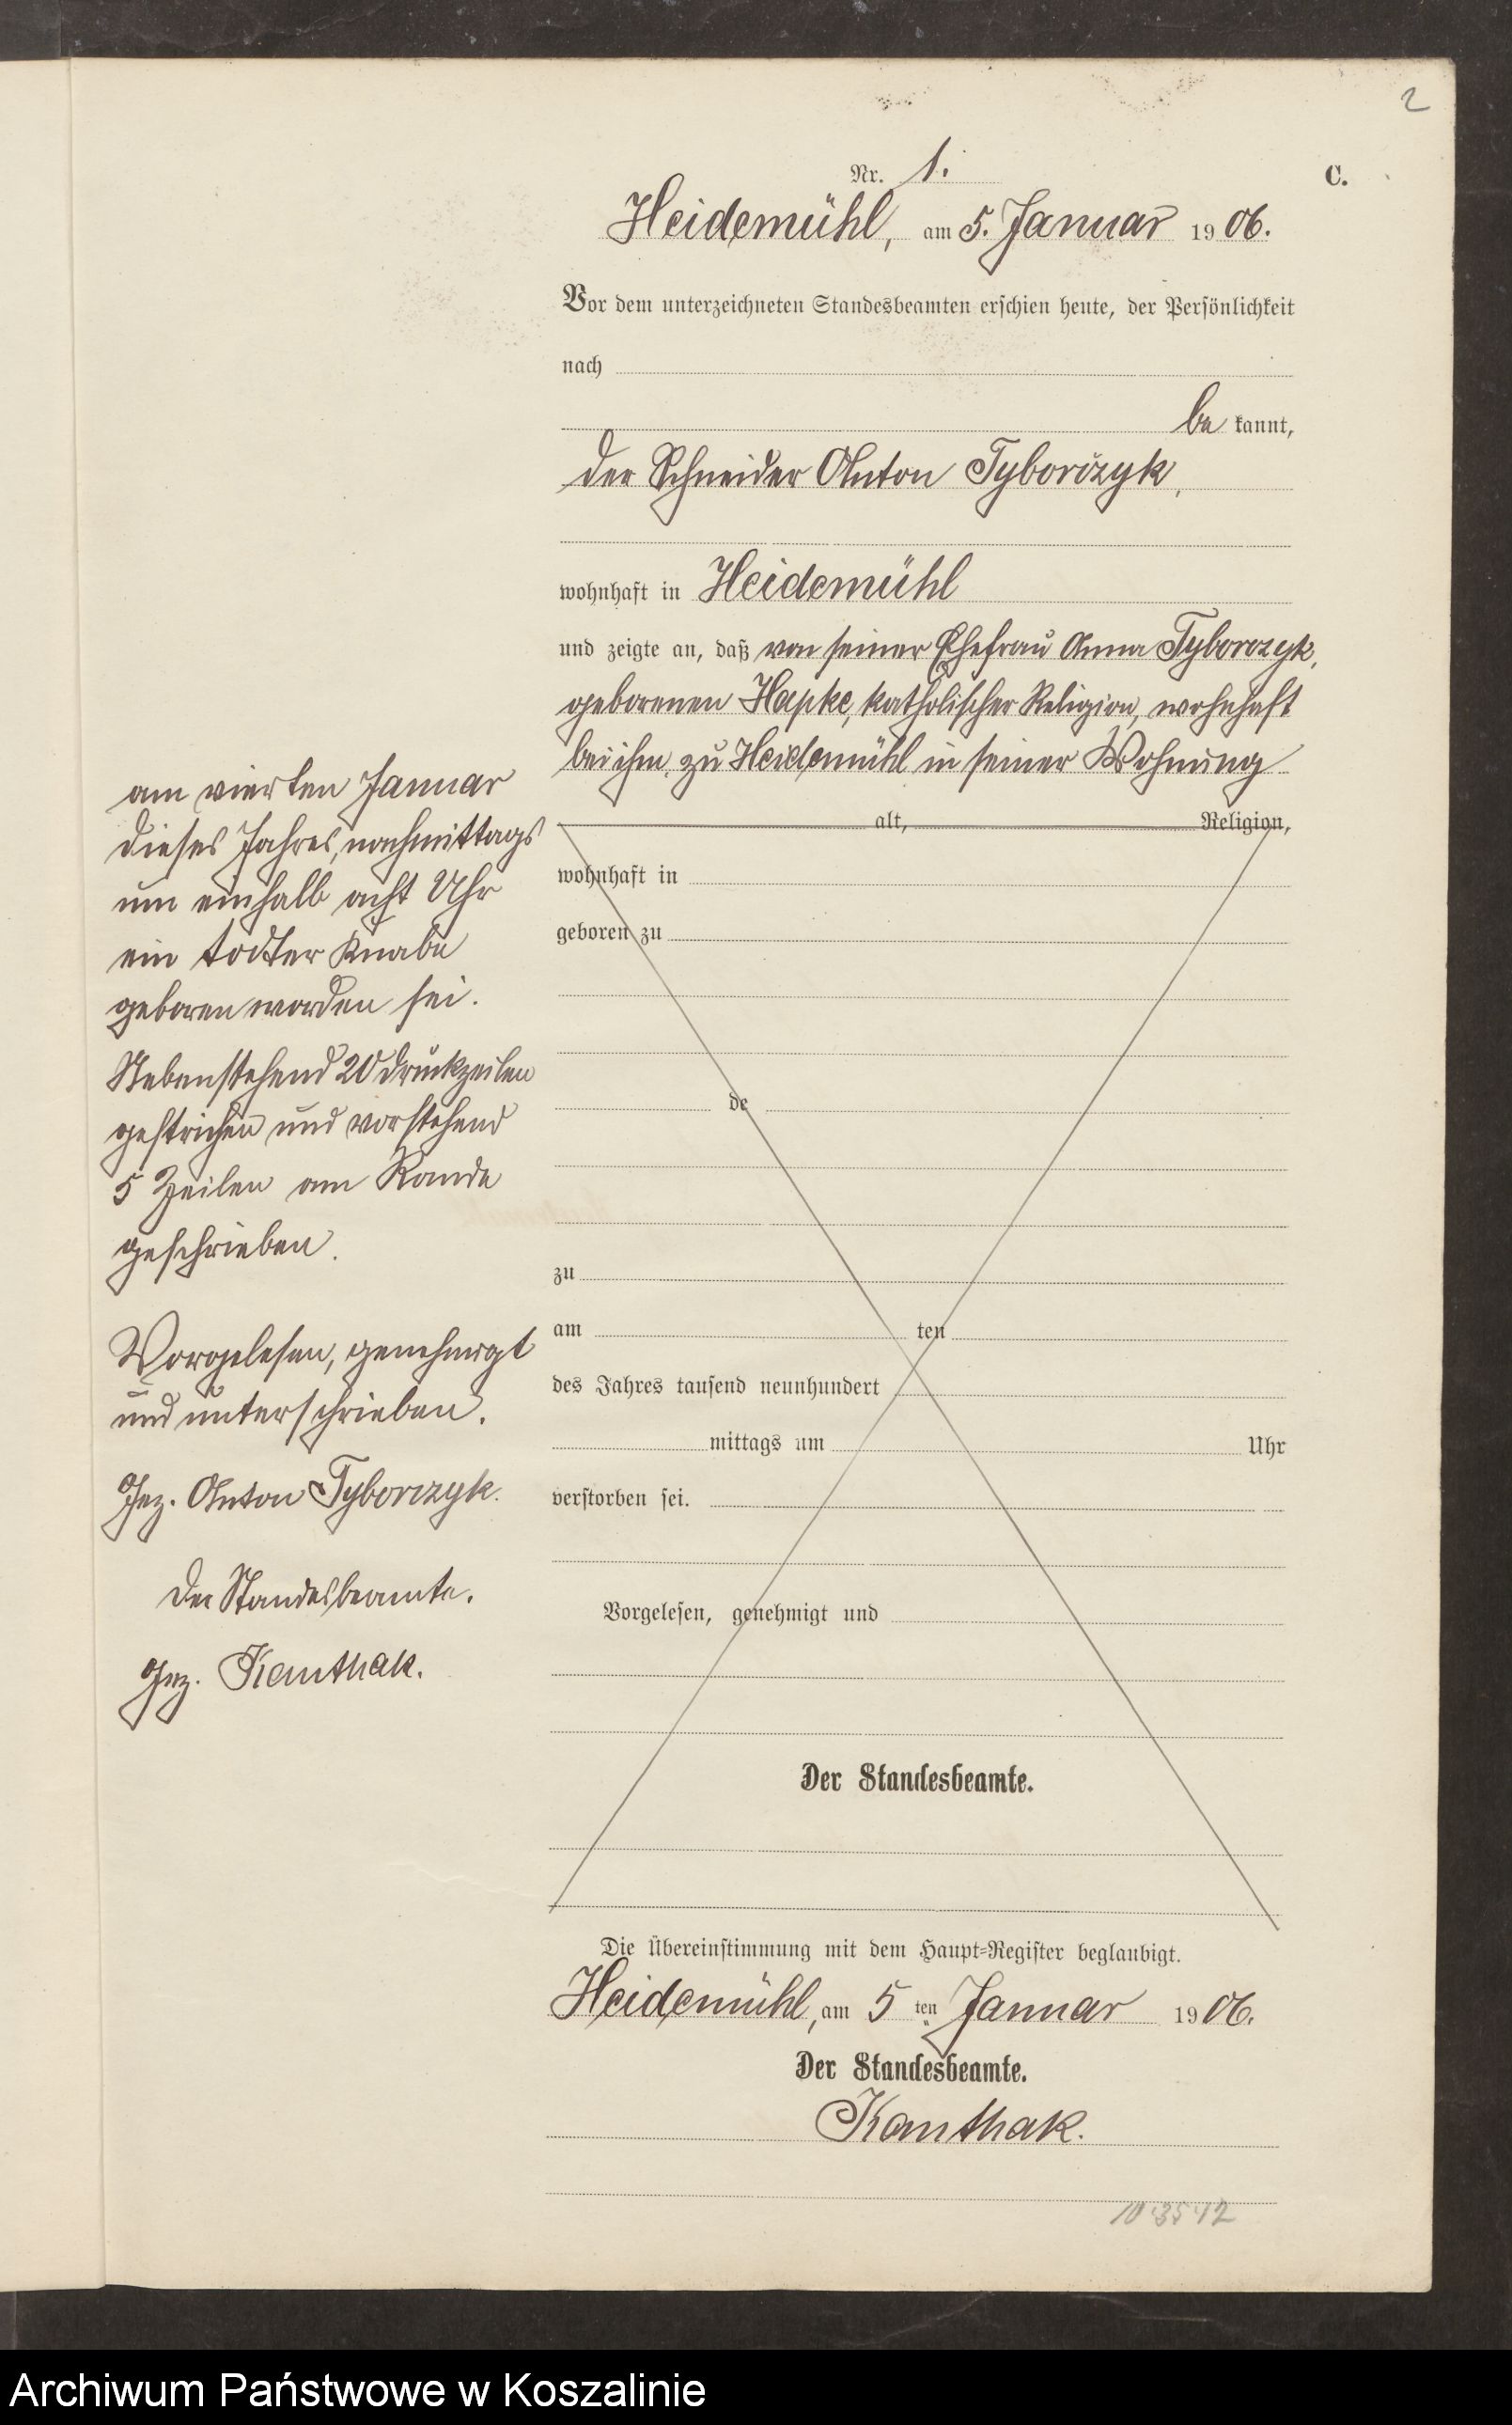 2
Nr. 1.
C.
Heidemühl, am 5. Januar 1906.
Vor dem unterzeichneten Standesbeamten erschien heute, der Persönlichkeit
nach
be kannt,
der Schneider Anton Tyborczyk,
wohnhaft in Heidemühl
und zeigte an, daß von seiner Ehefrau Anna Tyborczyk,
geborenen Hapke, katholischer Religion, wohnhaft
bei ihm, zu Heidemühl in seiner Wohnung
alt, Religion,
wohnhaft in
geboren zu
de
zu
am ten
des Jahres tausend neunhundert
mittags um Uhr
verstorben sei.
Vorgelesen, genehmigt und
Der Standesbeamte.
am vierten Januar
dieses Jahres, nachmittags
um einhalb acht Uhr
ein todter Knabe
geboren worden sei.
Nebenstehend 20 Druckzeilen
gestrichen und vorstehend
5 Zeilen am Rande
geschrieben.
Vorgelesen, genehmigt
und unterschrieben.
Gez. Anton Tyborczyk.
Der Standesbeamte.
Gez. Kanthak.
Die Übereinstimmung mit dem Haupt-Register beglaubigt.
Heidemühl, am 5 ten Januar 1906.
Der Standesbeamte.
Kanthak.
Archiwum Państwowe w Koszalinie